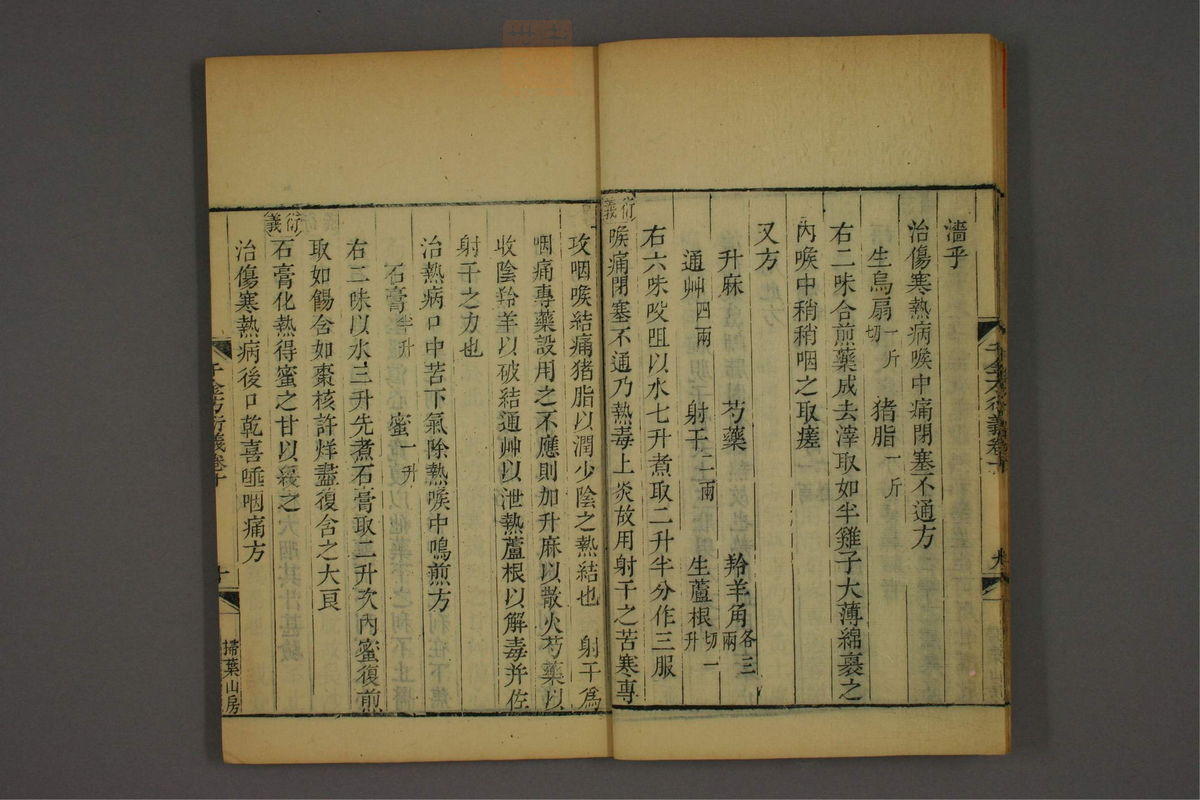 濇乎
治傷寒熱病喉中痛閉塞不通方
生烏扇一斤切 猪脂一斤
右二味合煎藥成去滓取如半雞子大薄綿裹之
內喉中稍稍咽之取瘥
又方
升麻 芍藥 羚羊角各三兩
通艸四兩 射干二兩 生蘆根切一升
右六味㕮咀以水七升煮取二升半分作三服
衍義
喉痛閉塞不通乃熱毒上炎故用射干之苦寒專
攻咽喉結痛猪脂以潤少陰之熱結也 射干爲
咽痛專藥設用之不應則加升麻以散火芍藥以
收陰羚羊以破結通艸以泄熱蘆根以解毒并佐
射干之力也
治熱病口中苦下氣除熱喉中鳴煎方
石膏半升 蜜一升
右二味以水三升先煮石膏取二升次內蜜復煎
取如餳含如棗核許烊盡復含之大良
衍義
石膏化熱得蜜之甘以緩之
治傷寒熱病後口乾喜唾咽痛方
千金方衍義卷十
十
掃葉山房